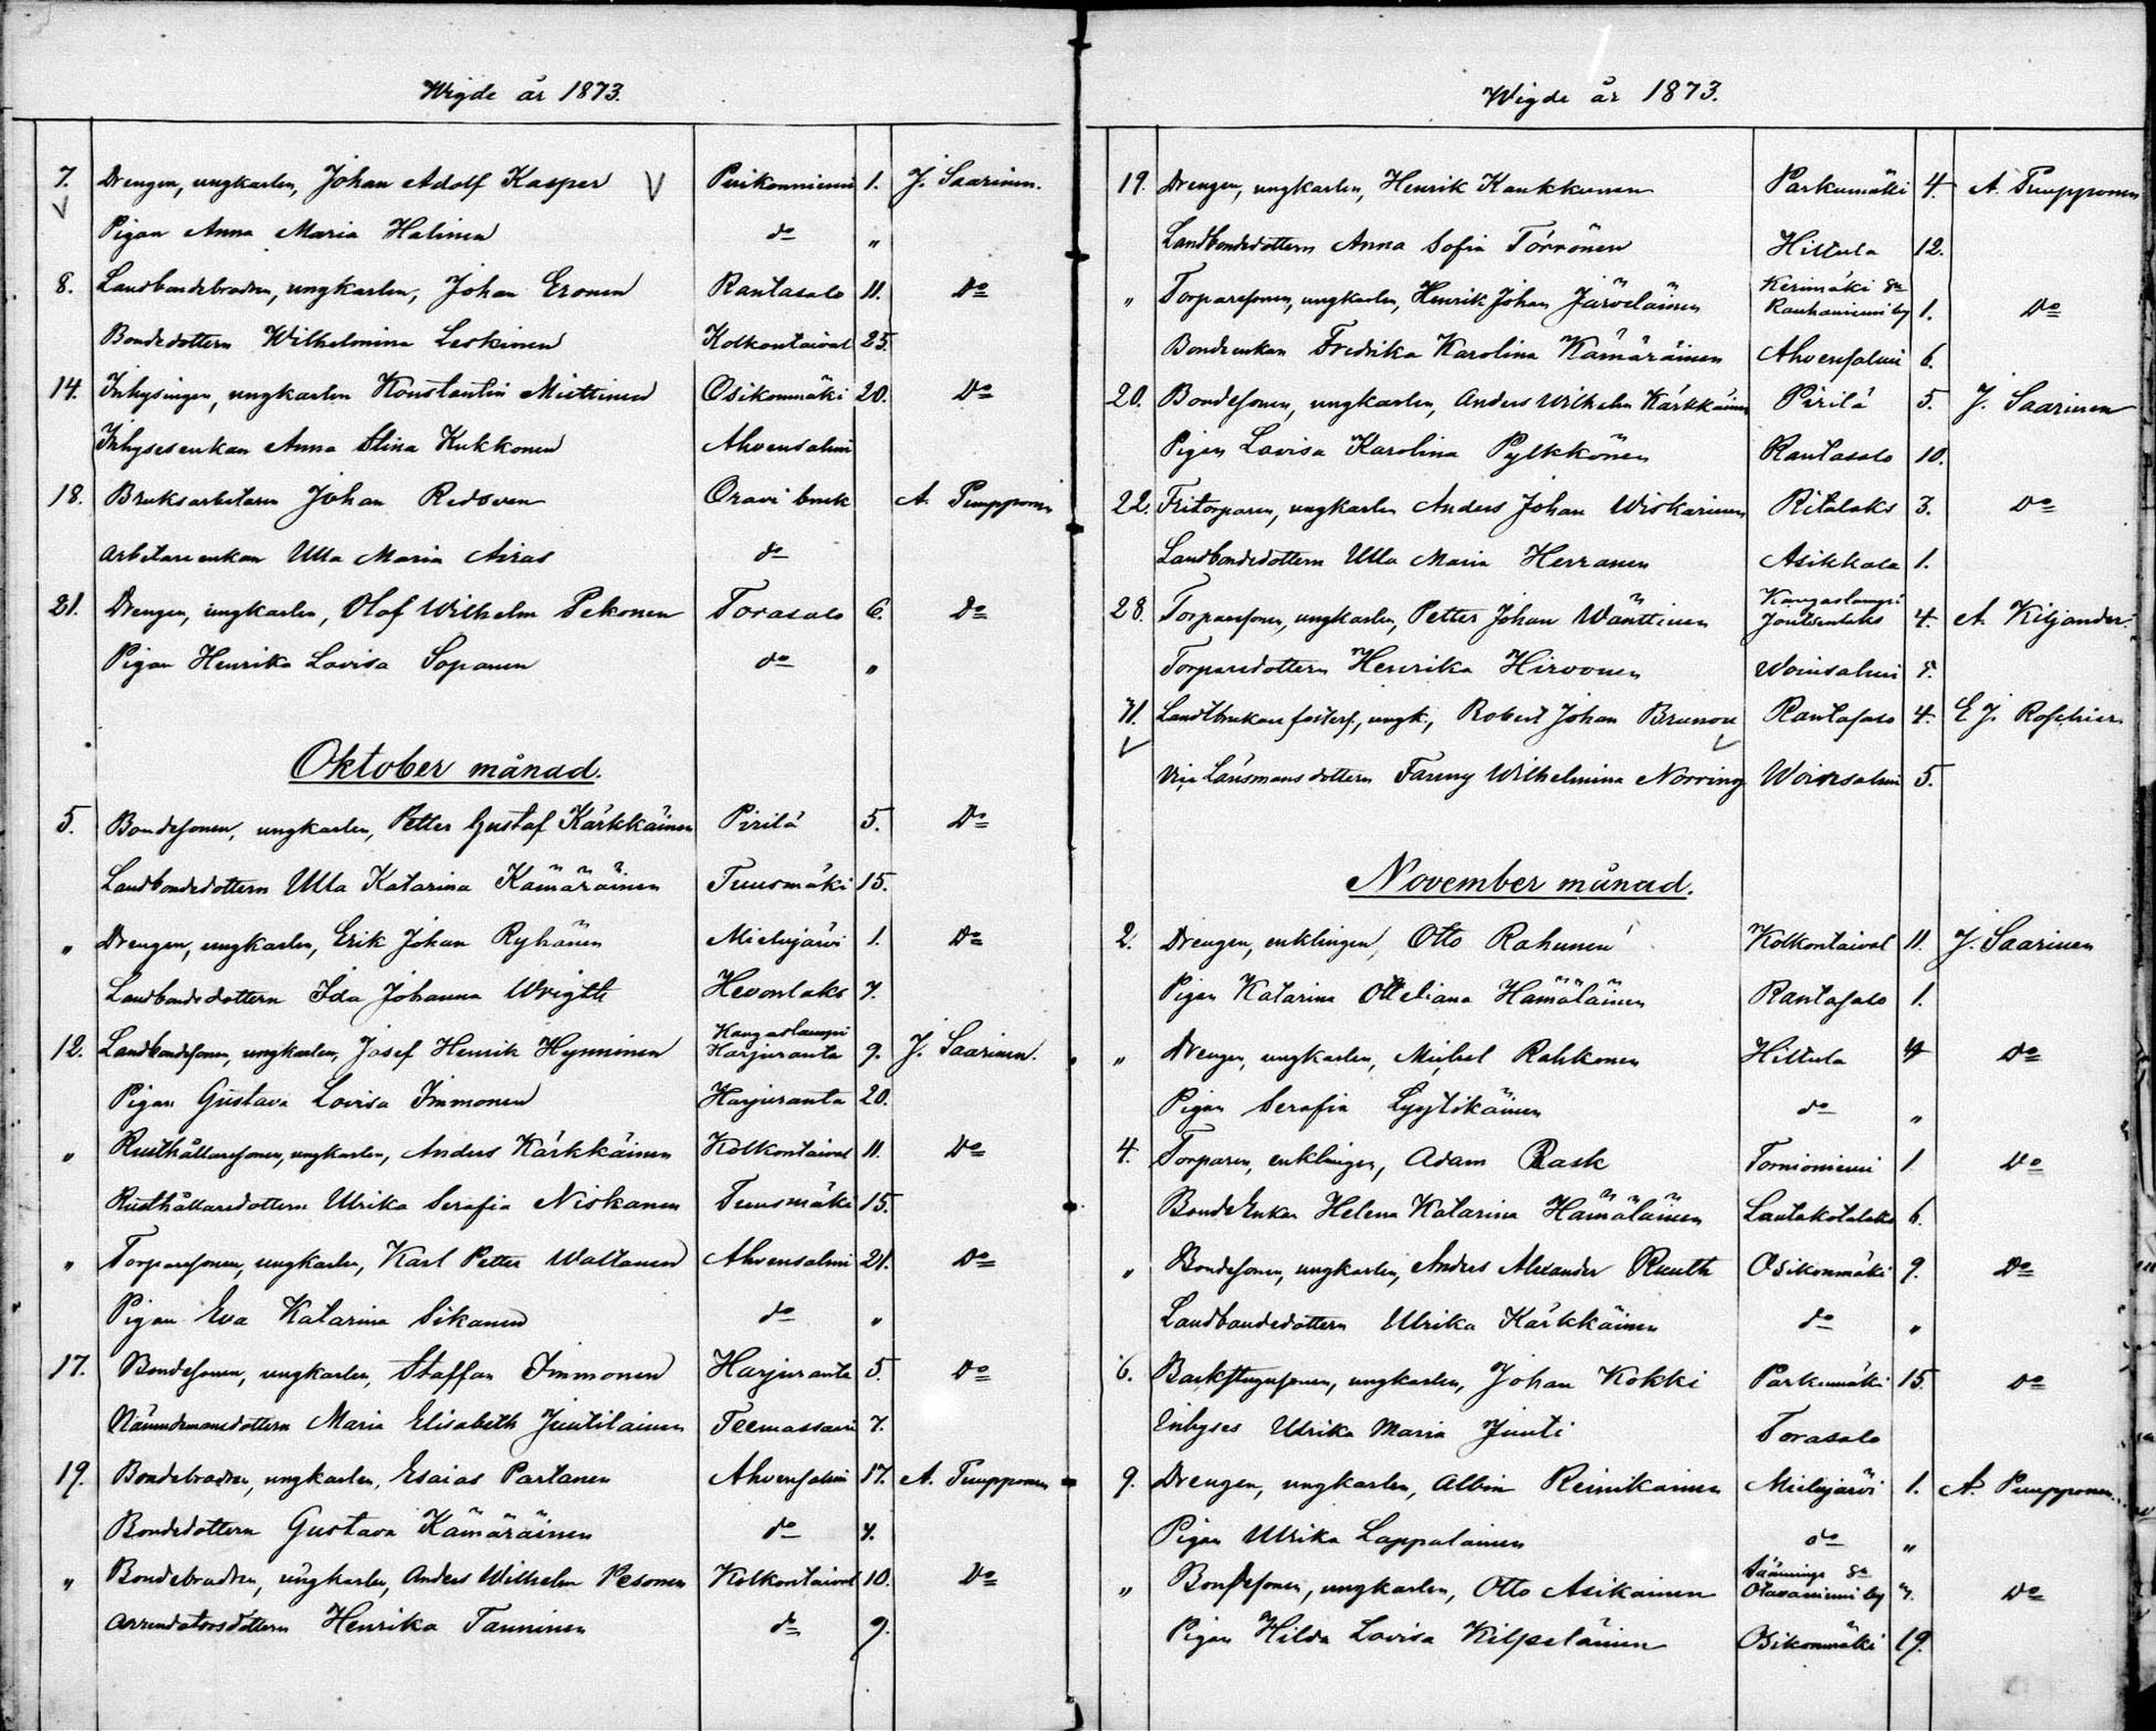 Wigde år 1873.
7. Drengen, ungkarlen, Johan Adolf Kasper V Puikonniemi 1. J. Saarinen.
V Pigan Anna Maria Halinen do "
8. Landbondebrodren, ungkarlen, Johan Eronen Rantasalo 11. Do
Bondedottern Wilhelmina Leskinen Kolkontaival 25.
14. Inhysingen, ungkarlen Konstantin Miettinen Osikonmäki 20. Do
Inhysesenkan Anna Stina Kukkonen Ahvensalmi
18. Bruksarbetaren Johan Redsven Oravi bruk A. Pumpponen
Arbetareenkan Ulla Maria Airas do
21. Drengen, ungkarlen, Olof Wilhelm Pekonen Torasalo 6. Do
Pigan Henrika Lovisa Sopanen do "
Oktober månad.
5. Bondesonen, ungkarlen, Petter Gustaf Kärkkäinen Pirilä 5. Do
Landbondedottern Ulla Katarina Kämäräinen Tuusmäki 15.
" Drengen, ungkarlen, Erik Johan Ryhänen Mielujärvi 1. Do
Landbondedottern Ida Johanna Wrigth Hevonlaks 7.
12. Landbondesonen, ungkarlen, Josef Henrik Hynninen Kangaslampi Harjuranta 9. J. Saarinen.
Pigan Gustava Lovisa Immonen Harjuranta 20.
" Rusthållaresonen, ungkarlen, Anders Kärkkäinen Kolkontaival 11. Do
Rusthållaredottern Ulrika Serafia Niskanen Tuusmäki 15.
" Torparesonen, ungkarlen, Karl Petter Waltanen Ahvensalmi 21. Do
Pigan Eva Katarina Sikanen do "
17. Bondesonen, ungkarlen, Staffan Immonen Harjuranta 5. Do
Nämndemansdottern Maria Elisabeth Juutilainen Teemassaari 7.
19. Bondebrodren, ungkarlen, Esaias Partanen Ahvensalmi 17. A. Pumpponen
Bondedottern Gustava Kämäräinen do 7.
" Bondebrodren, ungkarlen, Anders Wilhelm Pesonen Kolkontaival 10. Do
Arrendatorsdottern Henrika Tanninen do 9.
Wigde år 1873.
19. Drengen, ungkarlen, Henrik Kaukkunen Parkumäki 4. A. Pumpponen
Landbondedottern Anna Sofia Törrönen Hiltula 12.
" Torparesonen, ungkarlen, Henrik Johan Järveläinen Kerimäki Sn Rauhaniemi by 1. Do
Bondeenkan Fredrika Karolina Kämäräinen Ahvensalmi 6.
20. Bondesonen, ungkarlen, Anders Wilhelm Kärkkäinen Pirilä 5. J. Saarinen
Pigan Lovisa Karolina Pylkkönen Rantasalo 10.
22. Fritorparen, ungkarlen Anders Johan Wiskarinen Ritalaks 3. Do
Landbondedottern Ulla Maria Herranen Asikkala 1.
28. Torparesonen, ungkarlen, Petter Johan Wänttinen Kangaslampi Joutsenlaks 4. A. Kiljander.
Torparedottern Henrika Hirvonen Woinsalmi
31. Landtbrukare fosters., ungk., Robert Johan Brunou Rantasalo 4. E J. Roschier.
V Vice Länsmansdottern Fanny Wilhelmina Norring Woinsalmi 5.
November månad.
2. Drengen, enklingen, Otto Rahunen Kolkontaival 11. J. Saarinen
Pigan Katarina Otteliana Hämäläinen Rantasalo 1.
" Drengen, ungkarlen, Michel Rahkonen Hiltula 4 Do
Pigan Serafia Lyytikäinen do "
4. Torparen, enklingen, Adam Rask Tornioniemi 1 Do
BondeEnkan Helena Katarina Hämäläinen Lautakotalaks 6.
" Bondesonen, ungkarlen, Anders Alexander Ruuth Osikonmäki 9. Do
Landbondedottern Ulrika Kärkkäinen do "
6. Backstugusonen, ungkarlen, Johan Kokki Parkumäki 15 Do
Inhyses Ulrika Maria Juuti Torasalo
9. Drengen, ungkarlen, Albin Reinikainen Mielujärvi 1. A. Pumpponen.
Pigan Ulrika Lappalainen do "
" Bondesonen, ungkarlen, Otto Asikainen Sääminge Sn Otavaniemi by 7. Do
Pigan Hilda Lovisa Kilpeläinen Osikonmäki 19.